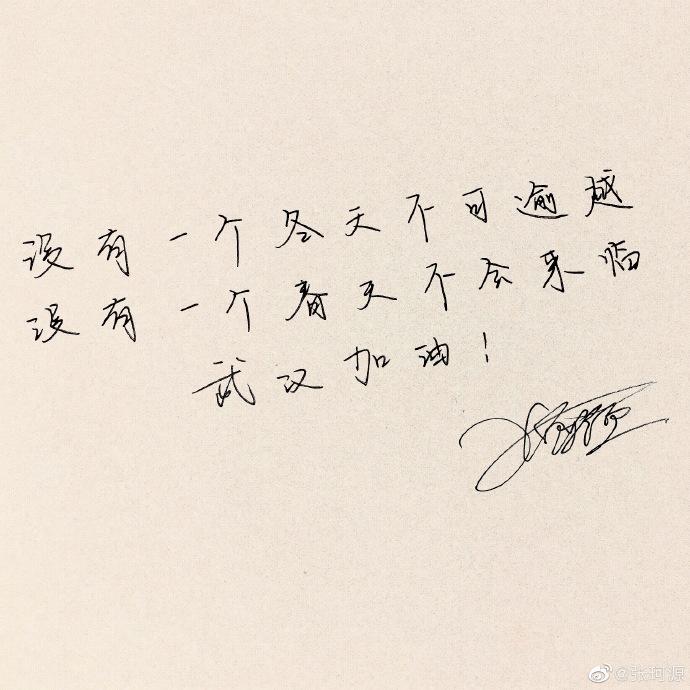 没有一个冬天不可逾越
没有一个春天不会来临
武汉加油！
@张珂源